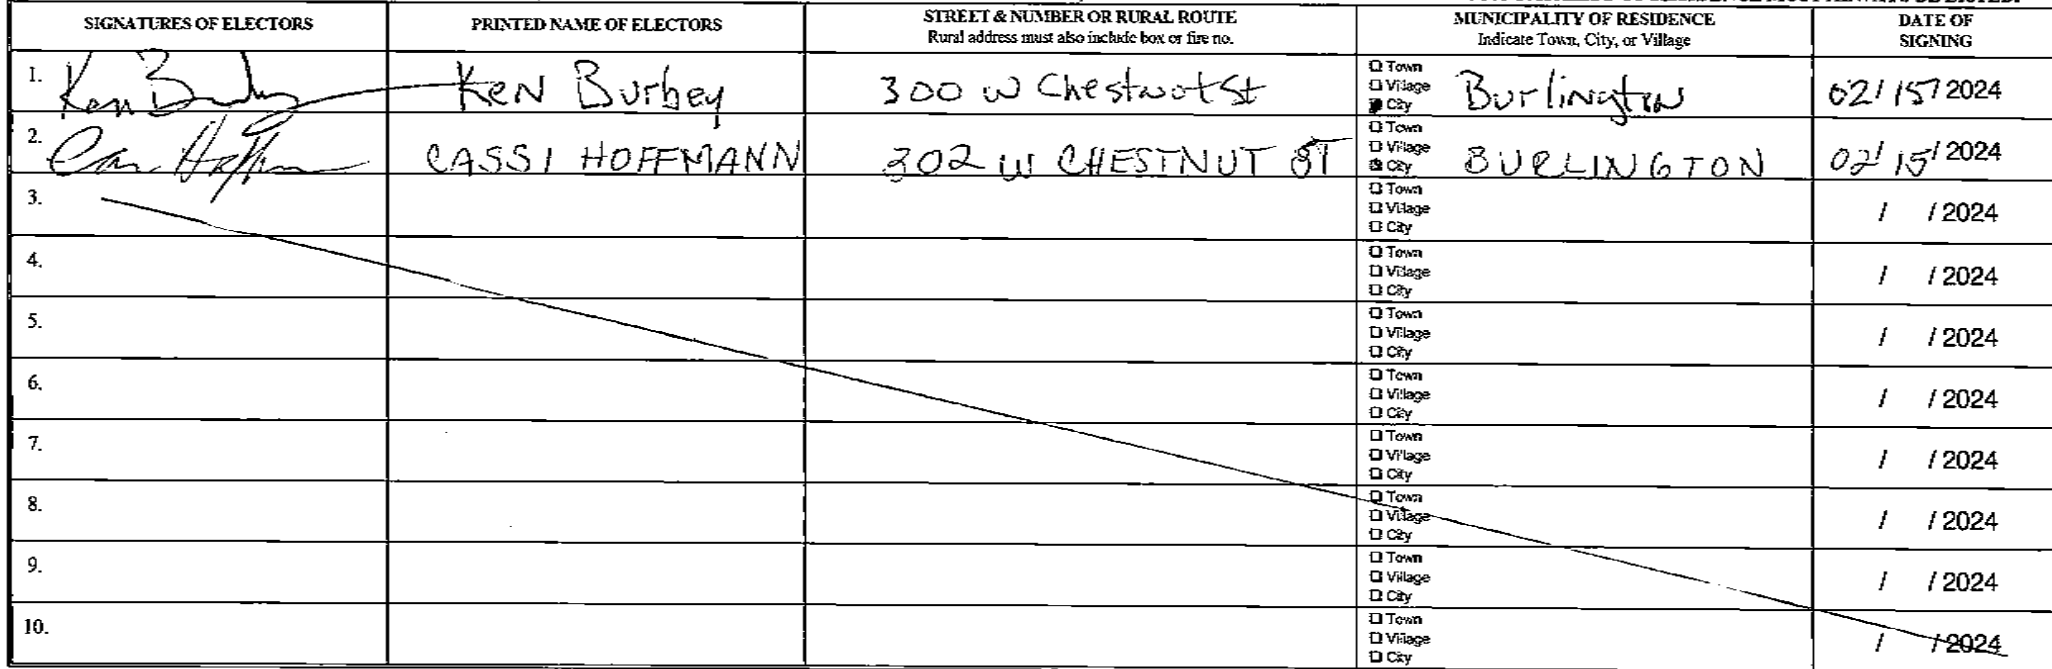 SIGNATURES OF ELECTORS PRINTED NAME OF ELECTORS STREET & NUMBER OR RURAL ROUTE MUNICIPALITY OF RESIDENCE DATE OF
Rural address must also include box or fire no. Indicate Town, City, or Village SIGNING
1. Ken Burbey KEN Burbey 300 W Chestnut St ☐ Town ☐ Village ☒ City Burlington 02/15/2024
2. CASSI HOFFMANN 302 W CHESTNUT ST ☐ Town ☐ Village ☒ City BURLINGTON 02/15/2024
3. ☐ Town ☐ Village ☐ City / / 2024
4. ☐ Town ☐ Village ☐ City / / 2024
5. ☐ Town ☐ Village ☐ City / / 2024
6. ☐ Town ☐ Village ☐ City / / 2024
7. ☐ Town ☐ Village ☐ City / / 2024
8. ☐ Town ☐ Village ☐ City / / 2024
9. ☐ Town ☐ Village ☐ City / / 2024
10. ☐ Town ☐ Village ☐ City / / 2024